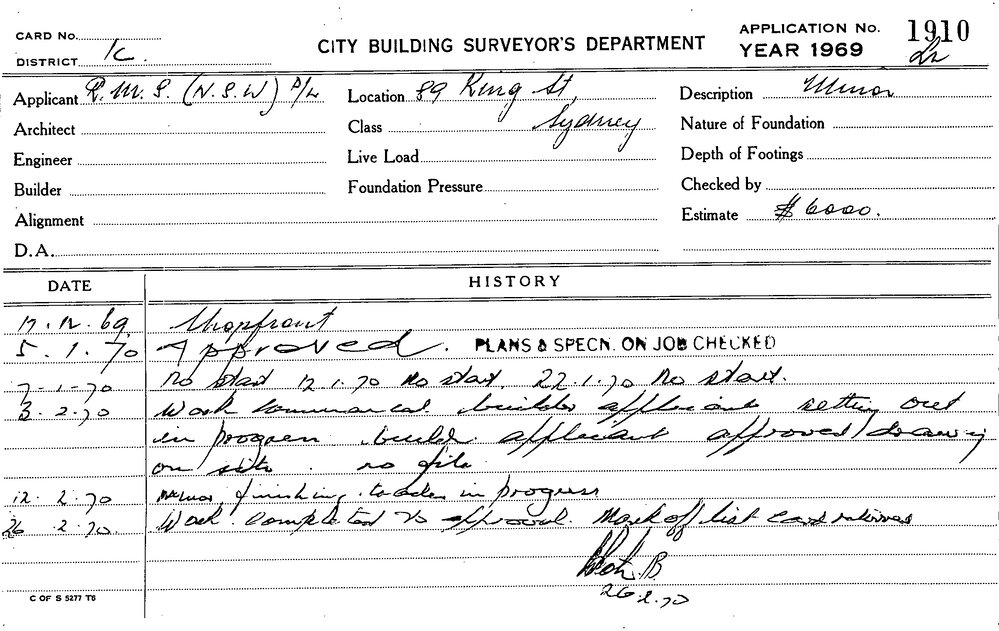 CARD No.
DISTRICT 1c.
CITY BUILDING SURVEYOR'S DEPARTMENT
APPLICATION No. 1910
YEAR 1969
Applicant R.M.S. (N.S.W) P/L
Location 89 King St,
Sydney
Description Minor
Architect
Class
Nature of Foundation
Engineer
Live Load
Depth of Footings
Builder
Foundation Pressure
Checked by
Alignment
Estimate $6000.
D.A.
DATE HISTORY
17.12.69 Shopfront
5.1.70 Approved. PLANS & SPECN. ON JOB CHECKED
7-1-70 No start 12.1.70 No start. 22.1.70 No start.
3.2.70 Work commenced builder applicant setting out
in progress build. applicant approved drawing
on site. no file
12.2.70 minor finishing in progress
26.2.70 Work completed to approval. Mark off list card
26.2.70
C OF S 5277 T8